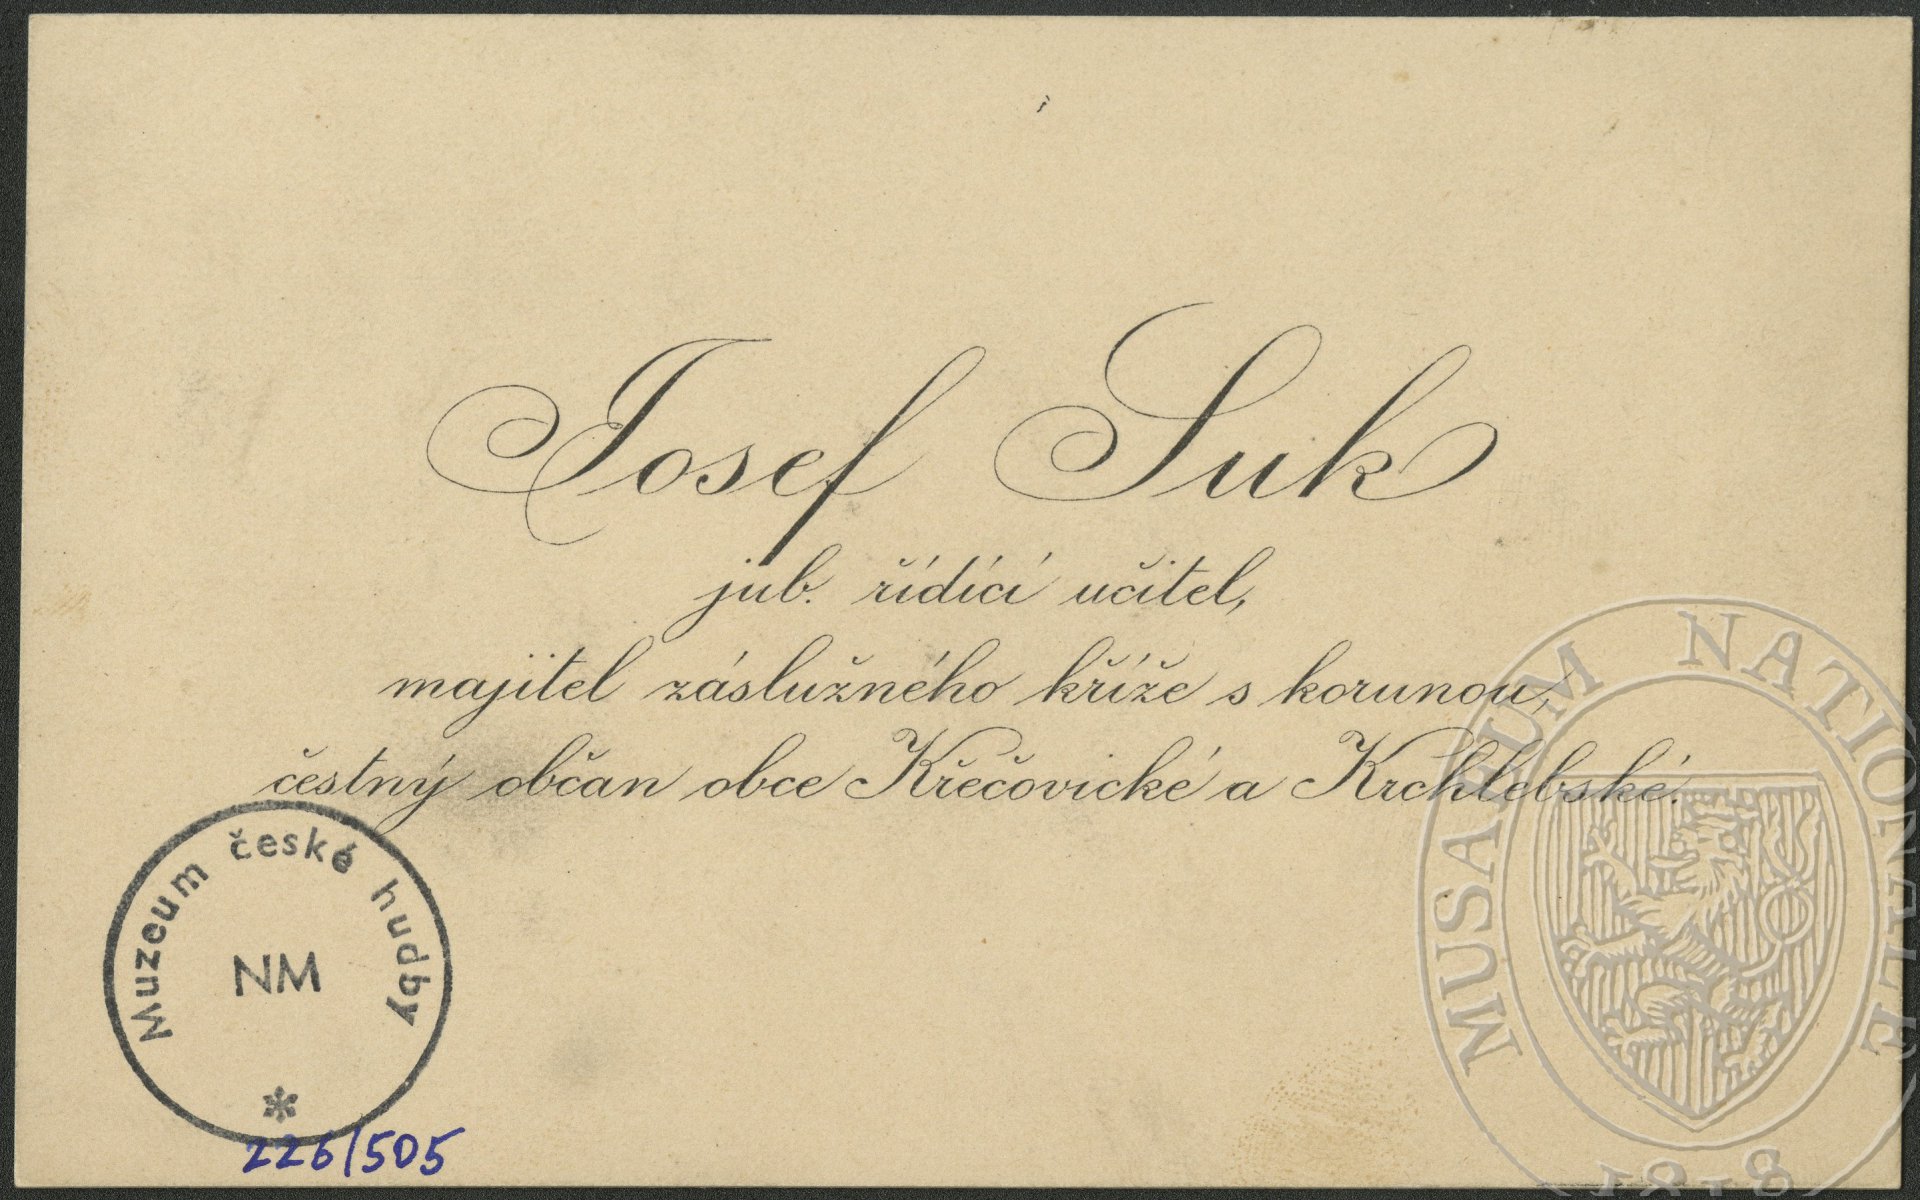 Josef Suk
jub. řídící učitel,
majitel záslužného kříže s korunou,
čestný občan obce Křečovické a Krchlebské.
Muzeum české hudby
NM
*
226/505
MUSAEUM NATIONALE
1818